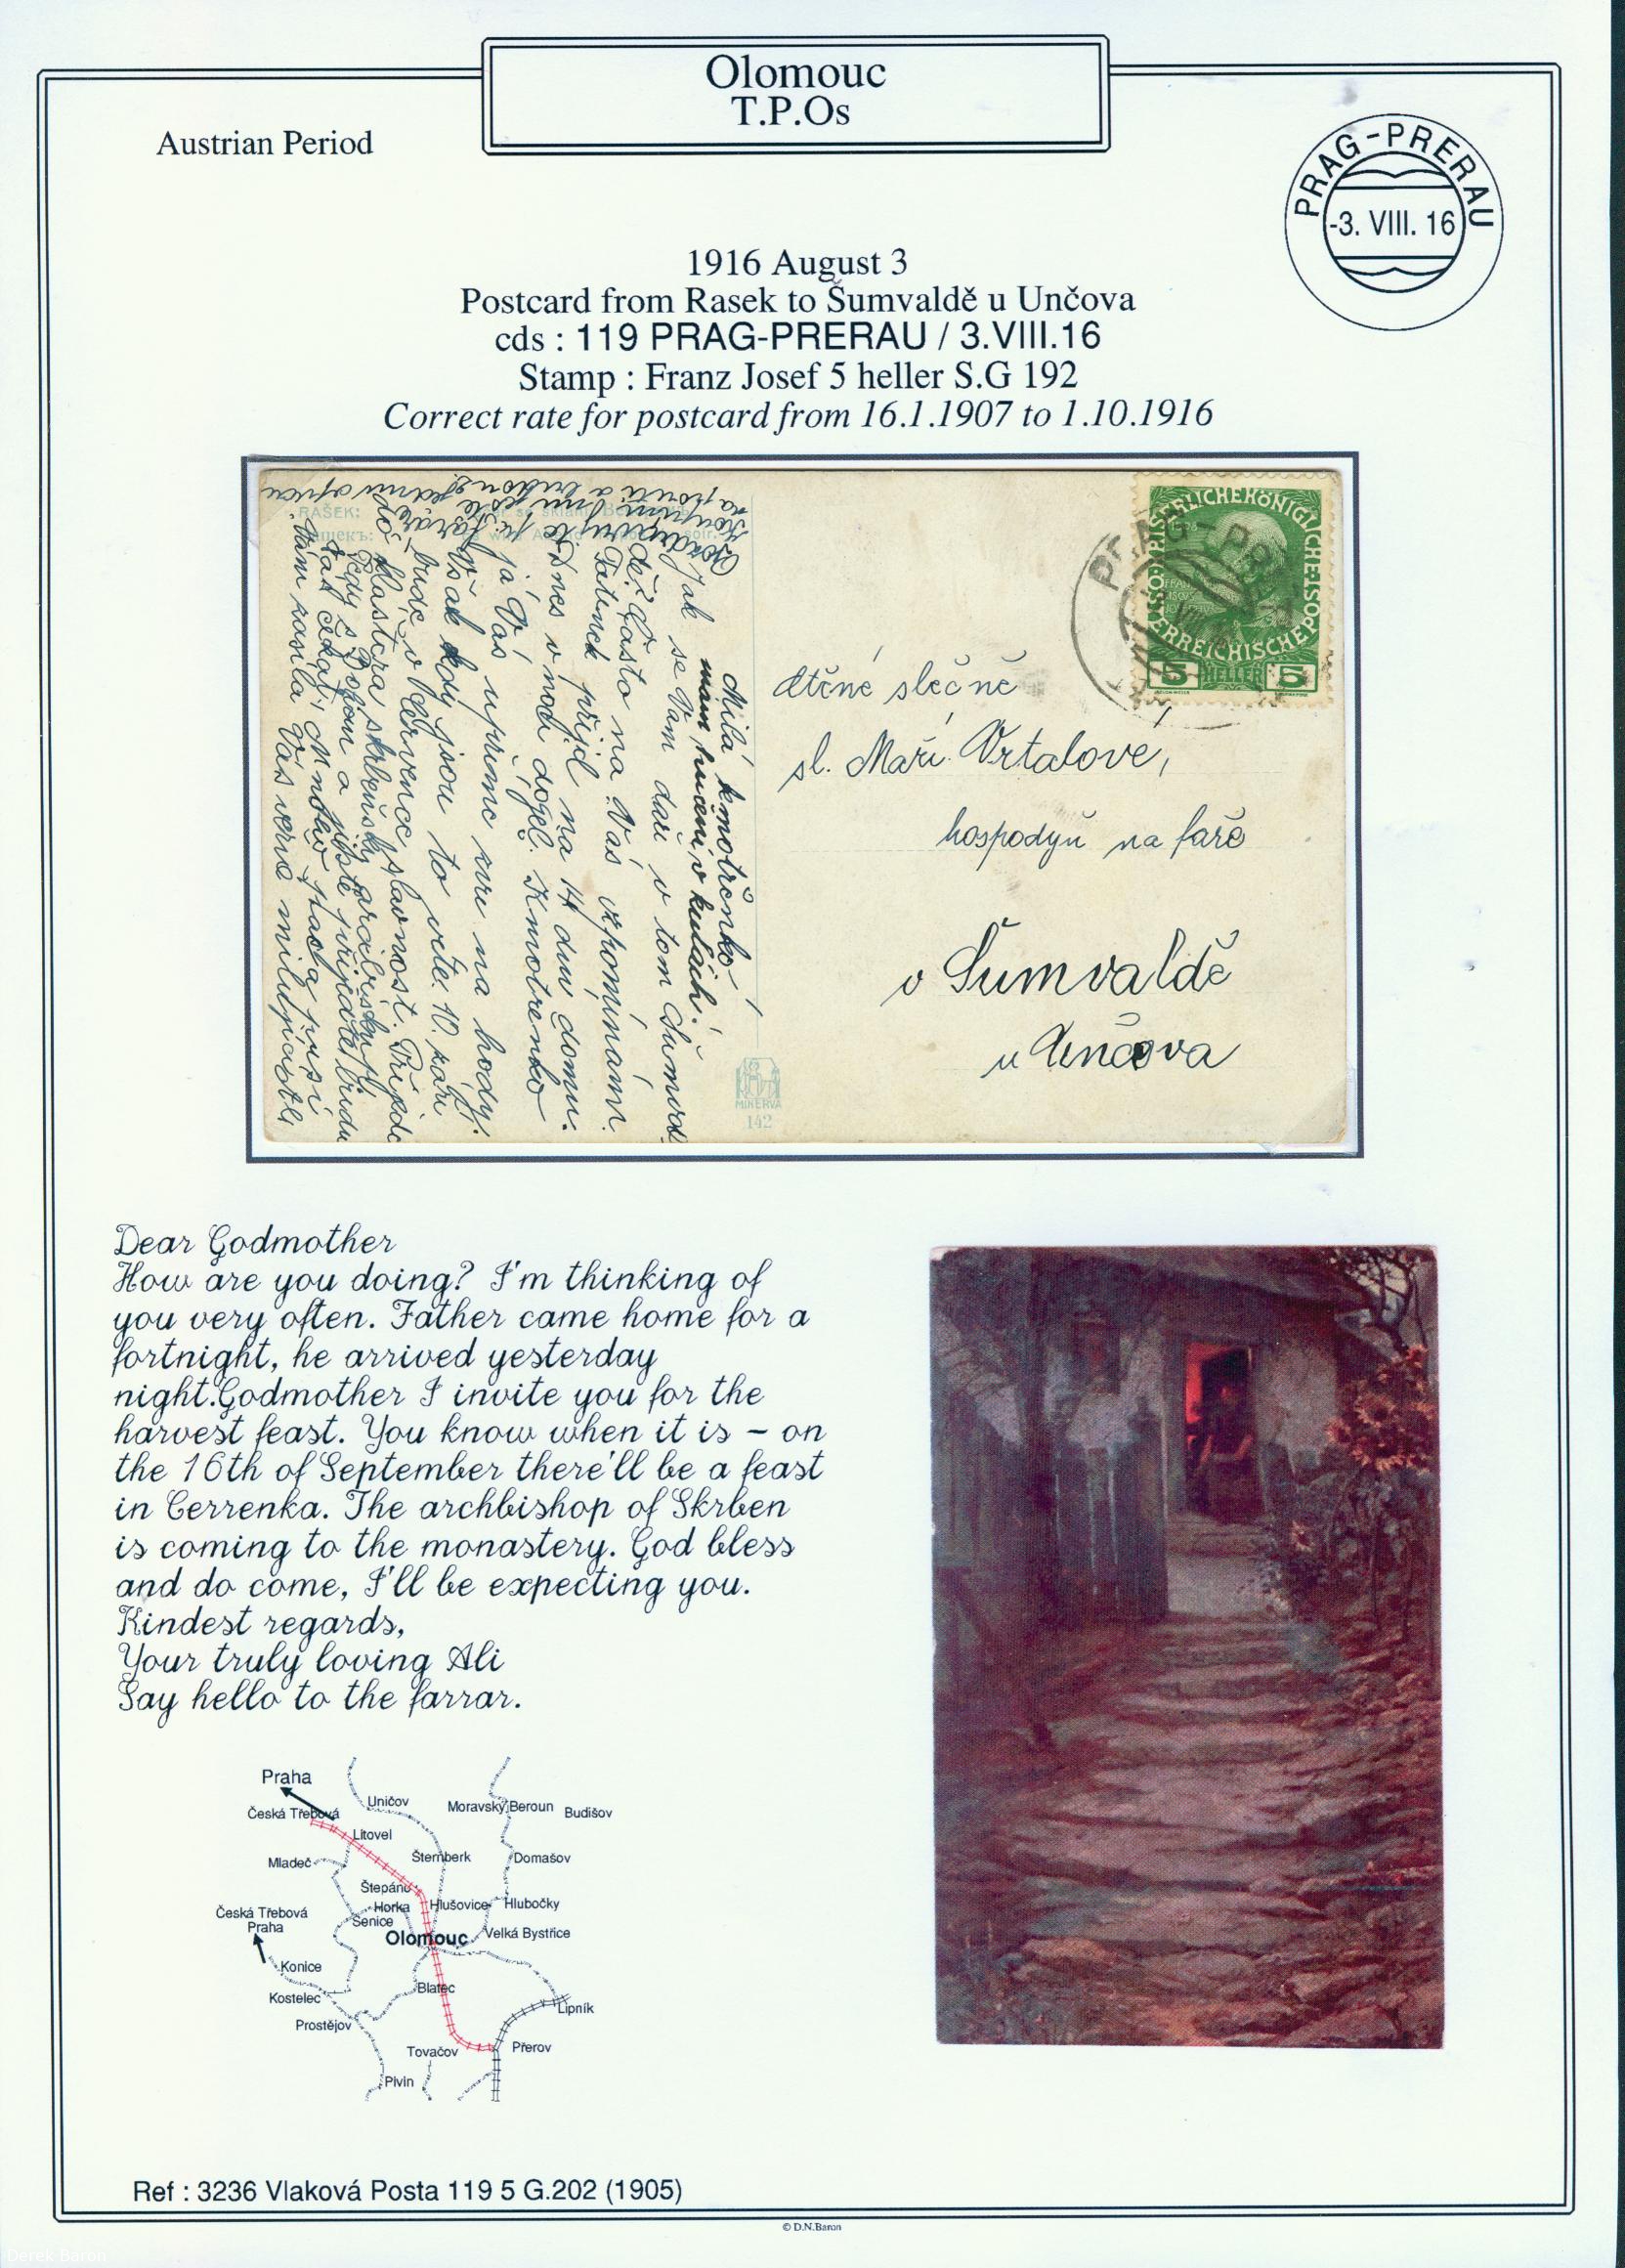 Olomouc
T.P.Os
Austrian Period
PRAG-PRERAU
-3. VIII. 16
1916 August 3
Postcard from Rasek to Šumvaldě u Unčova
cds : 119 PRAG-PRERAU / 3.VIII.16
Stamp : Franz Josef 5 heller S.G 192
Correct rate for postcard from 16.1.1907 to 1.10.1916
RAŠEK:
KAISERLICHEKÖNIGLICHE
ÖSTERREICHISCHEPOST
5 HELLER 5
PRAG-PR
Milá kmotřenko
mám v
Jak se Vám daří v tom Šumvald
dě? Často na Vás vzpomínám.
Tatínek přijel na 14 dnů domů.
Dnes v noci dojel. Kmotřenko
já Vás upřímně zvu na hody.
Však kdy jsou to víte. 10. září
bude v Července slavnost. Přijede
do kláštera
Tedy s Bohem a
Vás věrně milující
ctěné slečně
sl. Maři Vrtalové,
hospodyň na faře
v Šumvaldě
u Unčova
MINERVA
142
Dear Godmother
How are you doing? I'm thinking of
you very often. Father came home for a
fortnight, he arrived yesterday
night.Godmother I invite you for the
harvest feast. You know when it is – on
the 16th of September there'll be a feast
in Cerrenka. The archbishop of Skrben
is coming to the monastery. God bless
and do come, I'll be expecting you.
Kindest regards,
Your truly loving Ali
Say hello to the farrar.
Praha
Česká Třebová
Uničov
Moravský Beroun
Budišov
Litovel
Mladeč
Šternberk
Domašov
Štepánu
Horka
Hlušovice
Hlubočky
Česká Třebová
Praha
Senice
Olomouc
Velká Bystřice
Konice
Blatec
Kostelec
Lipník
Prostějov
Tovačov
Přerov
Pivin
Ref : 3236 Vlaková Posta 119 5 G.202 (1905)
© D.N.Baron
Derek Baron